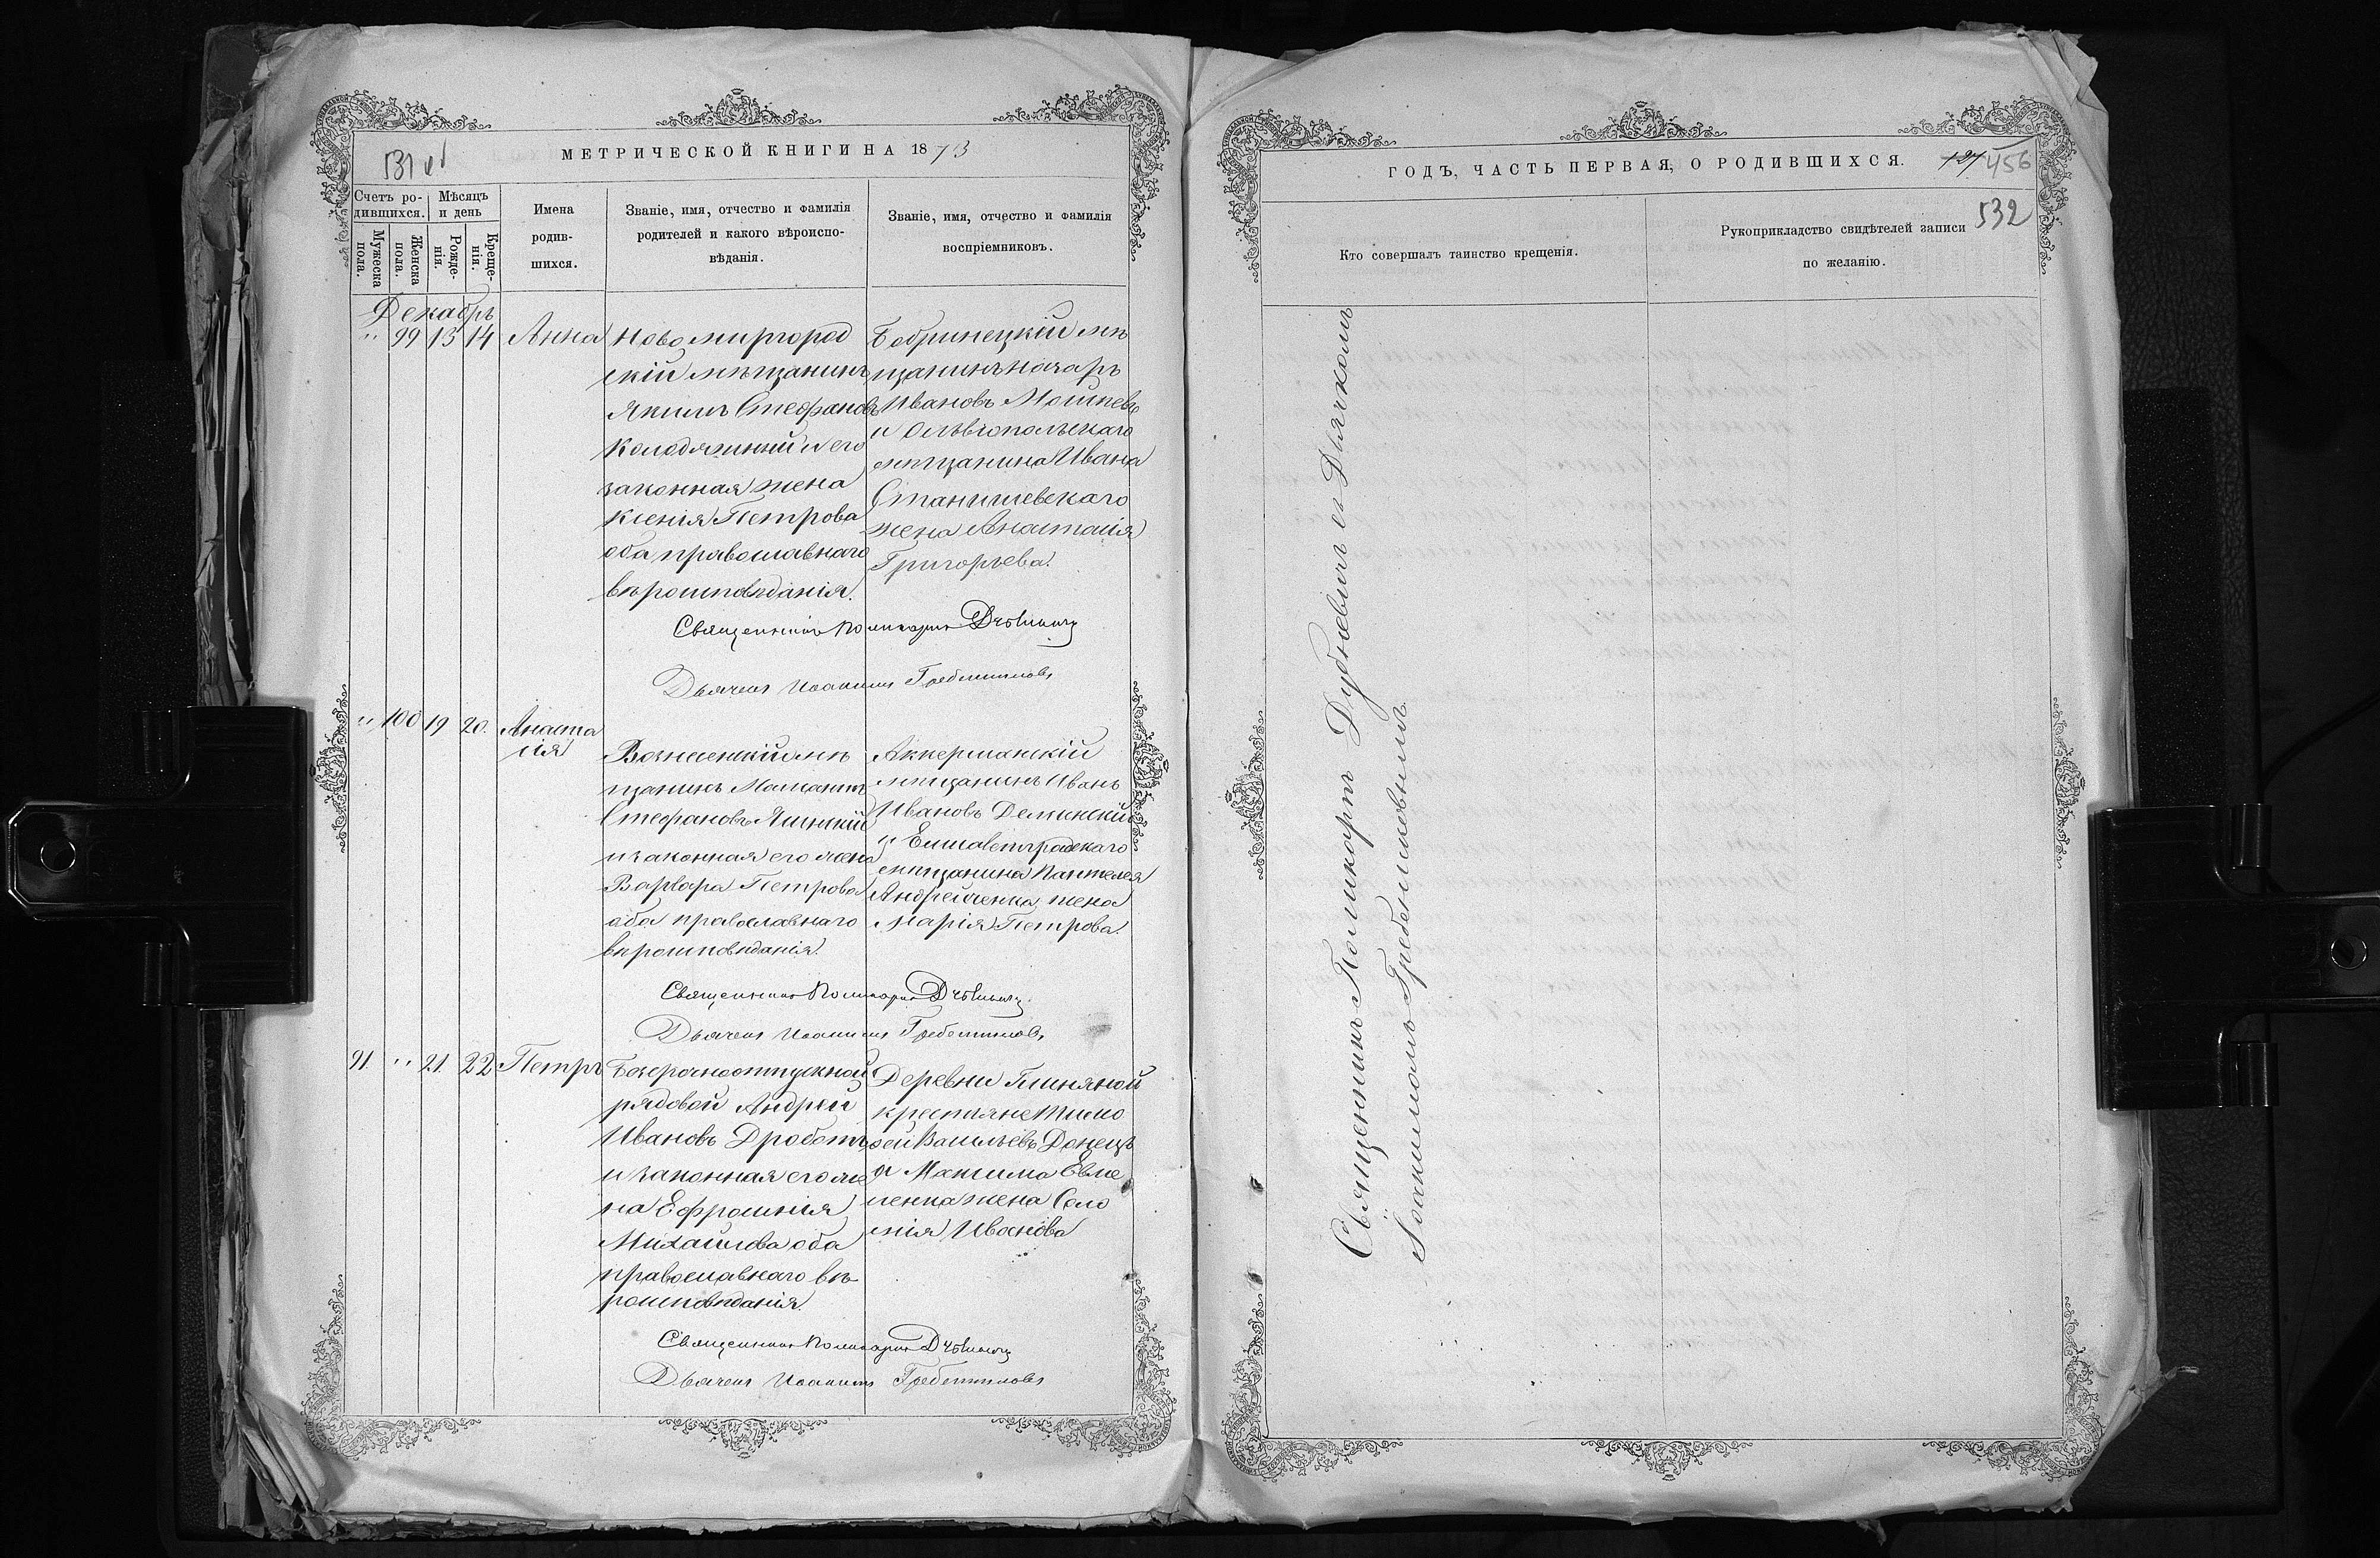 531
МЕТРИЧЕСКОЙ КНИГИ НА 1873
Счетъ родившихся.
Мѣсяцъ и день
Мужеска пола.
Женска пола.
Рожденія.
Крещенія.
Имена
родив-
шихся.
Званіе, имя, отчество и фамилія
родителей и какого вѣроиспо-
вѣданія.
Званіе, имя, отчество и фамилія
воспріемниковъ.
Декабрь
" 99 13 14 Анна
Новомиргород
скій мѣщанинъ
Якимъ Стефановъ
Колодяжный и его
законная жена
Ксенія Петрова
оба православнаго
вѣроисповѣданія.
Бобринецкій мѣ
щанинъ Назаръ
Ивановъ
и Ольвіопольскаго
мѣщанина Ивана
Станишевскаго
жена Анастасія
Григорьева.
Священникъ Поликарпъ Дубневичъ
Дьячекъ Іоакимъ Гребениковъ
" 100 19 20. Анаста
сія
Вознесенскій мѣ
щанинъ
Стефановъ Яшнскій
и законная его жена
Варвара Петрова
оба православнаго
вѣроисповѣданія.
Аккерманскій
мѣщанинъ Иванъ
Ивановъ
и Елисаветградскаго
мѣщанина Пантелея
Андрейченка жена
Марія Петрова.
Священникъ Поликарпъ Дубневичъ
Дьячекъ Іоакимъ Гребениковъ
91. " 21. 22 Петръ
Безсрочноотпускной
рядовой Андрей
Ивановъ Дроботъ
и законная его же
на Ефросинія
Михайлова оба
православнаго вѣ
роисповѣданія.
Деревни Глиняной
крестьяне Тимо
фей Васильевъ Донецъ
и Максима Евме
ненка жена Соло
мія Иванова
Священникъ Поликарпъ Дубневичъ
Дьячекъ Іоакимъ Гребениковъ
ГОДЪ, ЧАСТЬ ПЕРВАЯ, О РОДИВШИХСЯ.
121 456
532
Кто совершалъ таинство крещенія.
Рукоприкладство свидѣтелей записи
по желанію.
Священникъ Поликарпъ Дубневичъ съ Дьячкомъ
Іоакимомъ Гребениковымъ.